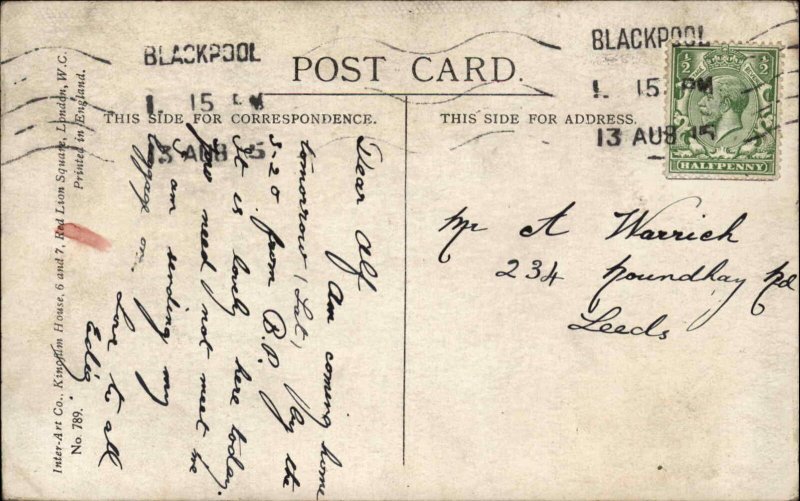 BLACKPOOL
1. 15 PM
13 AUG 15
BLACKPOOL
1. 15 PM
13 AUG 15
½ ½
HALFPENNY
POST CARD.
THIS SIDE FOR CORRESPONDENCE.
THIS SIDE FOR ADDRESS.
Inter-Art Co., Kingdom House, 6 and 7, Red Lion Square, London, W.C.
Printed in England.
No. 789.
Dear Alf
Am coming home
tomorrow (Sat) by the
3-20 from B.P.
It is lovely here today.
You need not meet me
I am sending my
luggage on.
Love to all
Mr A Warrich
234 Roundhay Rd
Leeds